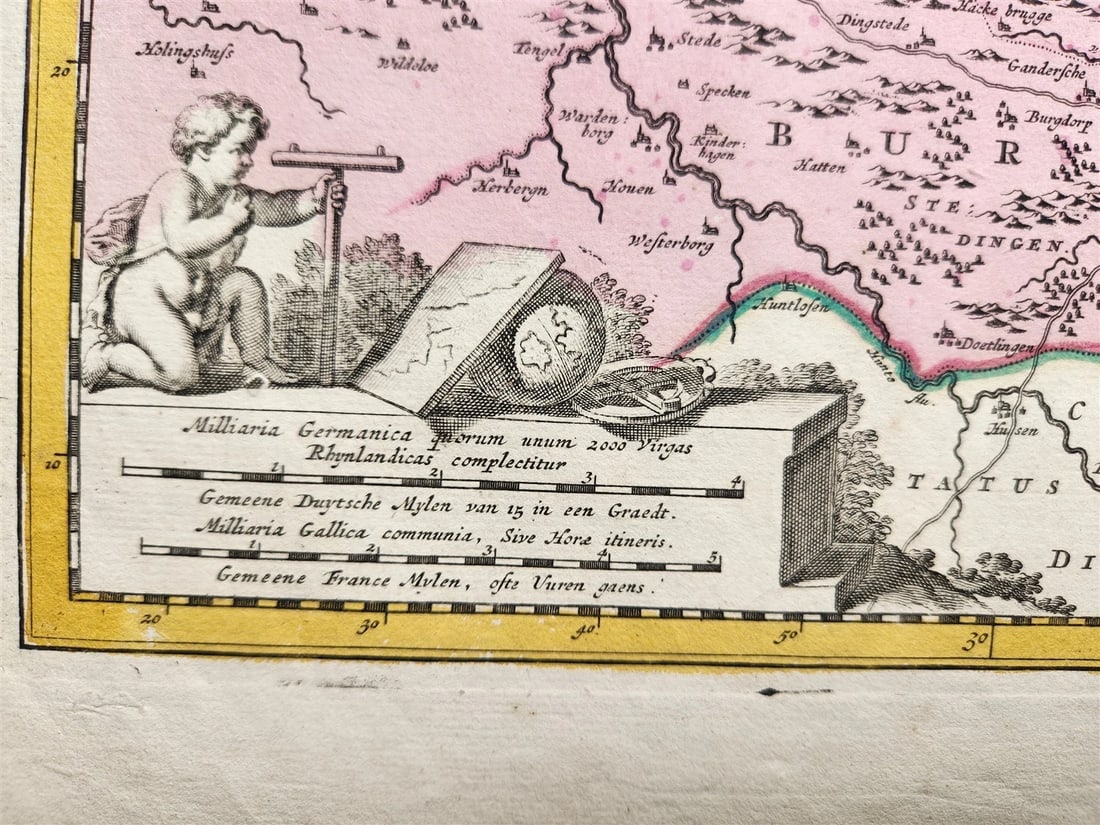 Hacke brugge
Dingstede
Holingshuss
Wildeloe
Tengel
Stede
20
Gandersche
Specken
Burgdorp
Warden:
borg
Kinder:
hagen
B U R
Hatten
Herbergn
Houen
STE:
DINGEN.
Westerborg
Huntlosen
Doetlingen
Hunte
flu.
C
Husen
TATUS
DI
Milliaria Germanica quorum unum 2000 Virgas
Rhynlandicas complectitur
10
1 2 3 4
Gemeene Duytsche Mylen van 15 in een Graedt.
Milliaria Gallica communia, Sive Horæ itineris.
1 2 3 4 5
Gemeene France Mylen, ofte Vuren gaens.
20 30 40 50 30